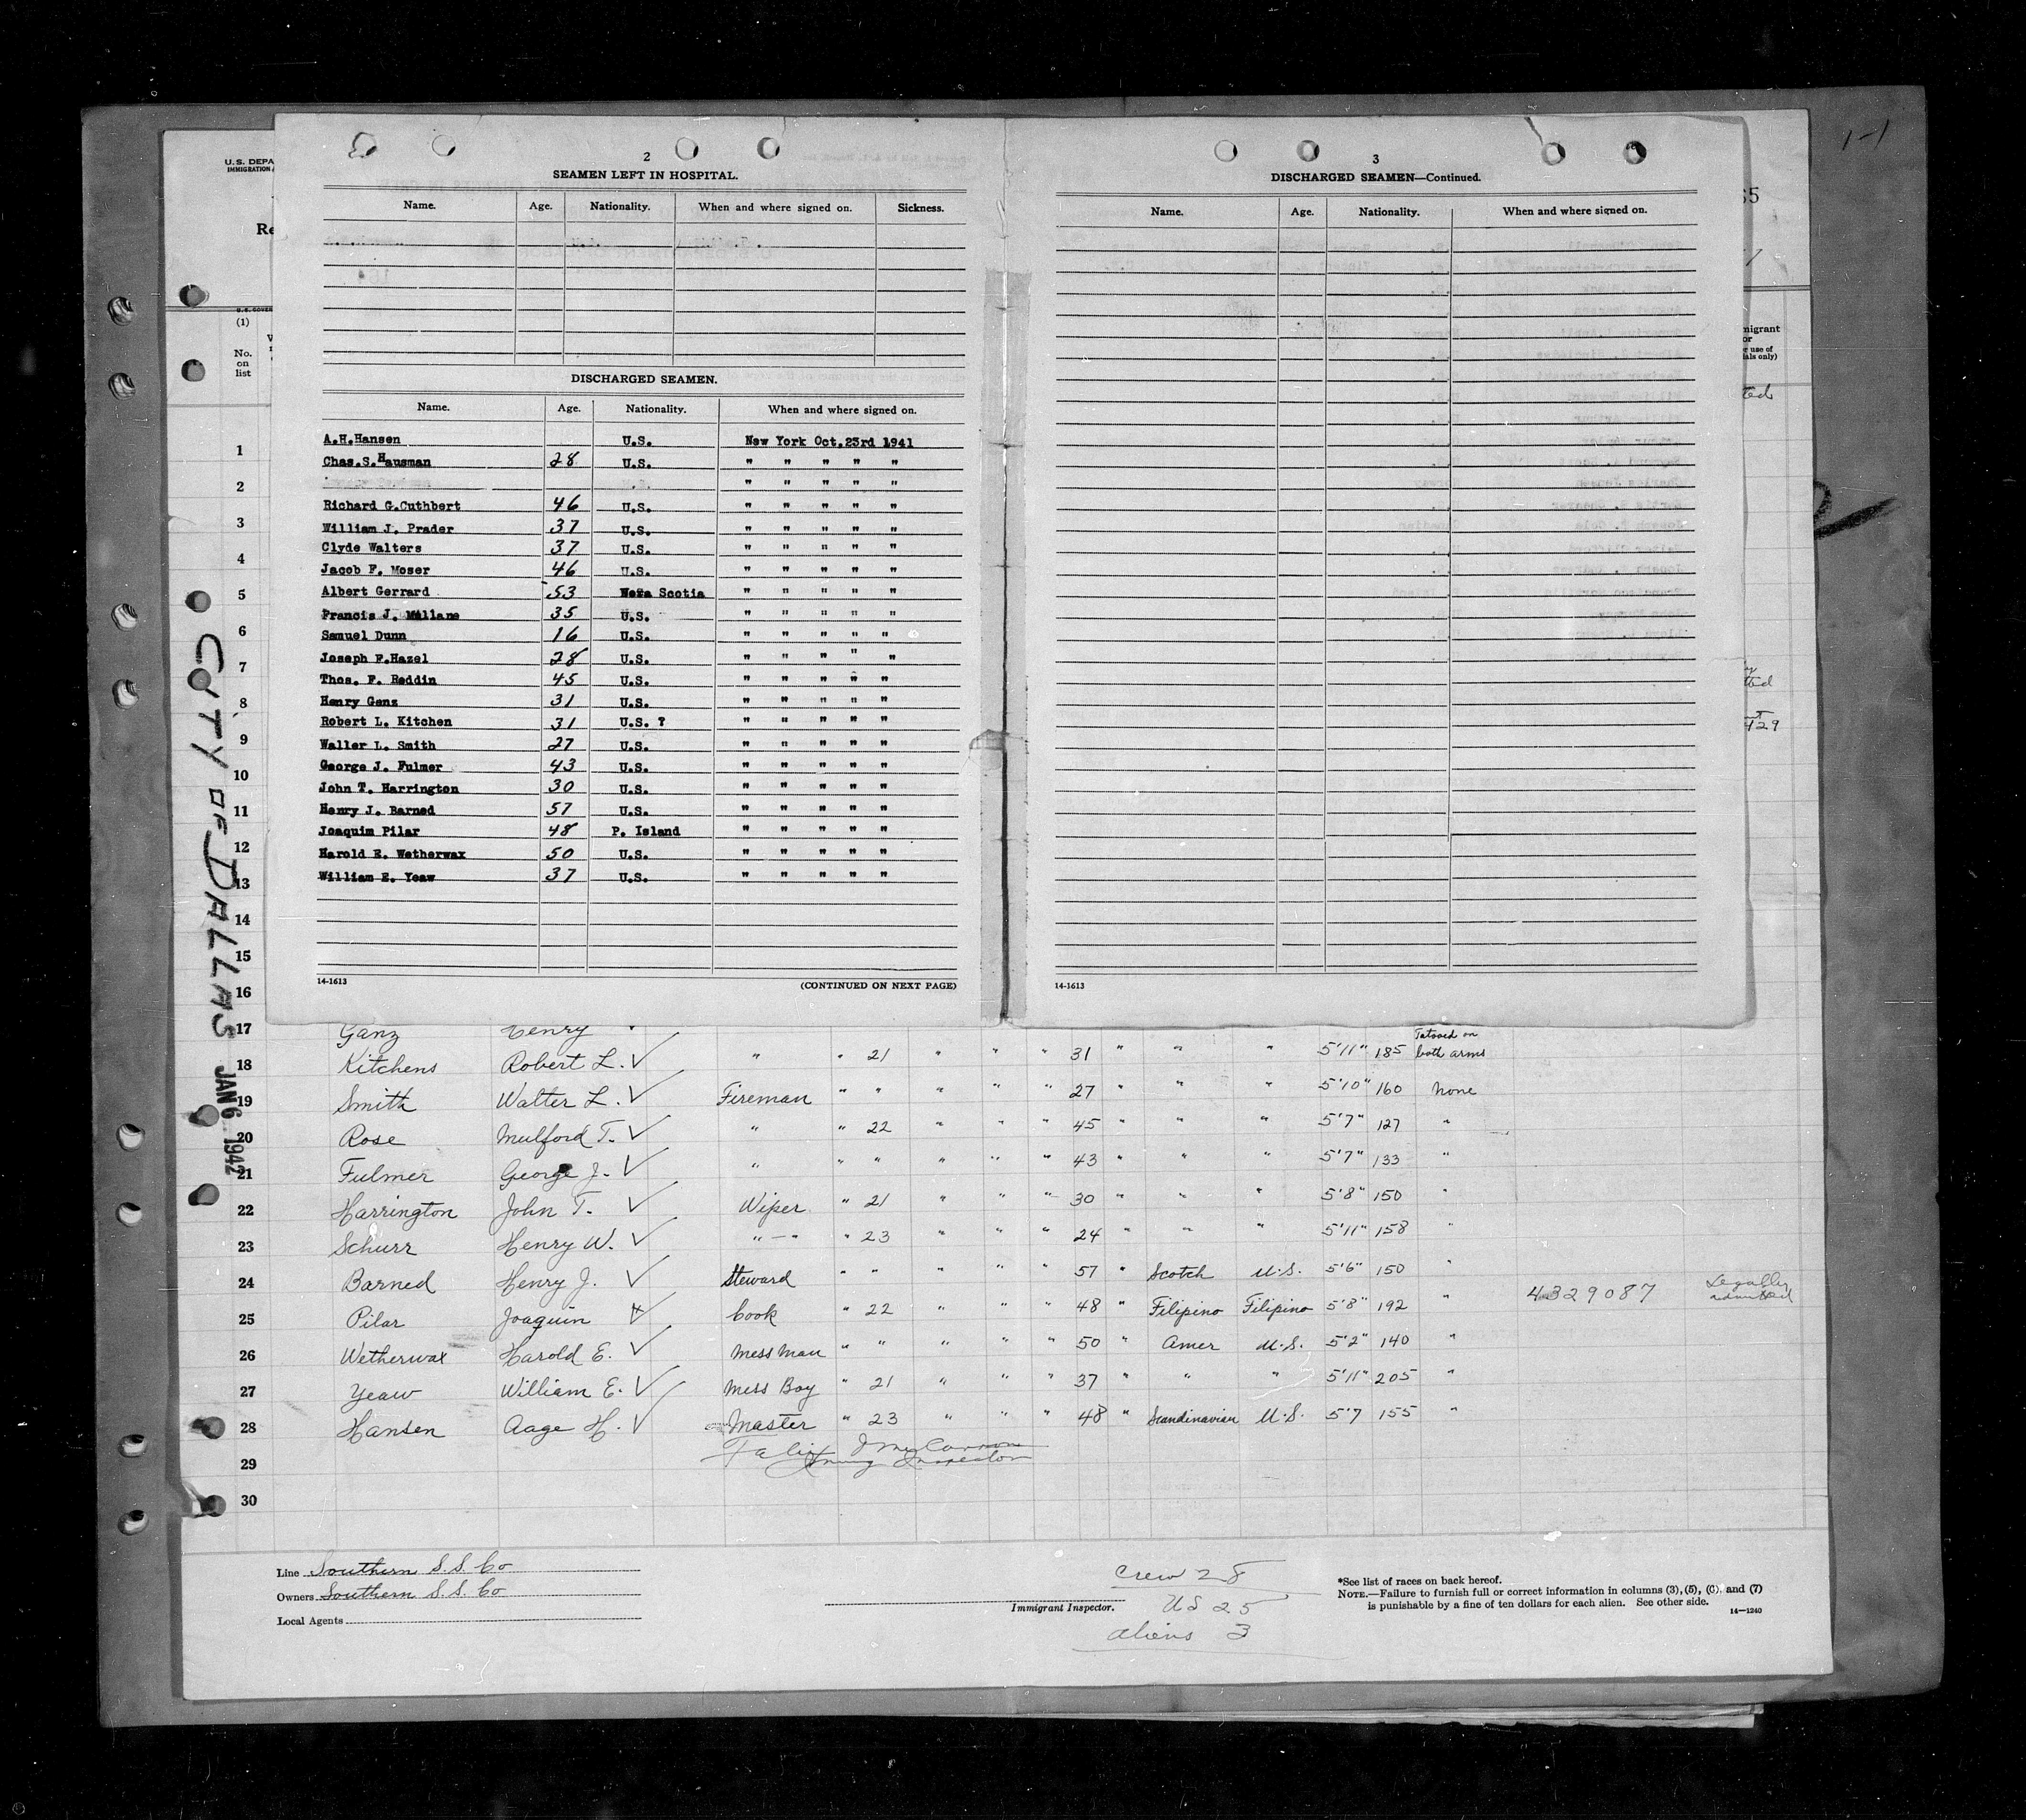 1-1
U.S. DEPA
IMMIGRATION
Re
U.S. GOVER
(1)
No.
on
list
2
SEAMEN LEFT IN HOSPITAL.
Name. Age. Nationality. When and where signed on. Sickness.
DISCHARGED SEAMEN.
Name. Age. Nationality. When and where signed on.
A.H.Hansen U.S. New York Oct.23rd 1941
Chas.S.Hausman 28 U.S. " " " " "
" " " " "
Richard G.Cuthbert 46 U.S. " " " " "
William J. Prader 37 U.S. " " " " "
Clyde Walters 37 U.S. " " " " "
Jacob F. Moser 46 U.S. " " " " "
Albert Gerrard 53 Nova Scotia " " " " "
Francis J. Mullane 35 U.S. " " " " "
Samuel Dunn 16 U.S. " " " " "
Joseph F.Hazel 28 U.S. " " " " "
Thos. F. Reddin 45 U.S. " " " " "
Henry Ganz 31 U.S. " " " " "
Robert L. Kitchen 31 U.S. ? " " " " "
Waller L. Smith 27 U.S. " " " " "
George J. Fulmer 43 U.S. " " " " "
John T. Harrington 30 U.S. " " " " "
Henry J. Barned 57 U.S. " " " " "
Joaquim Pilar 48 P. Island " " " " "
Harold E. Wetherwax 50 U.S. " " " " "
William E. Yeaw 37 U.S. " " " " "
14-1613 (CONTINUED ON NEXT PAGE)
3
DISCHARGED SEAMEN—Continued.
Name. Age. Nationality. When and where signed on.
14-1613
65
migrant
or
r use of
ials only)
ted
429
CITY OF DALLAS
JAN 6 1942
1
2
3
4
5
6
7
8
9
10
11
12
13
14
15
16
17 Ganz Henry
18 Kitchens Robert L. ✓ " " 21 " " " 31 " " " 5'11" 185 Tatooed on both arms
19 Smith Walter L. ✓ Fireman " " " " " 27 " " " 5'10" 160 None
20 Rose Mulford T. ✓ " " 22 " " " 45 " " " 5'7" 127 "
21 Fulmer George J. ✓ " " " " " " 43 " " " 5'7" 133 "
22 Harrington John T. ✓ Wiper " 21 " " " 30 " " " 5'8" 150 "
23 Schurr Henry W. ✓ " — " " 23 " " " 24 " " " 5'11" 158 "
24 Barned Henry J. ✓ Steward " " " " " 57 " Scotch U.S. 5'6" 150 "
25 Pilar Joaquin Cook " 22 " " " 48 " Filipino Filipino 5'8" 192 " 4329087 Legally admitted
26 Wetherwax Harold E. ✓ Mess Man " " " " " 50 " Amer U.S. 5'2" 140 "
27 Yeaw William E. ✓ Mess Boy " 21 " " " 37 " " " 5'11" 205 "
28 Hansen Aage H. ✓ Master " 23 " " " 48 " Scandinavian U.S. 5'7 155 "
29
30
Inspector
Line Southern S.S. Co
Owners Southern S.S. Co
Local Agents
Immigrant Inspector.
Crew 28
US 25
aliens 3
*See list of races on back hereof.
NOTE.—Failure to furnish full or correct information in columns (3), (5), (6), and (7)
is punishable by a fine of ten dollars for each alien. See other side.
14—1240